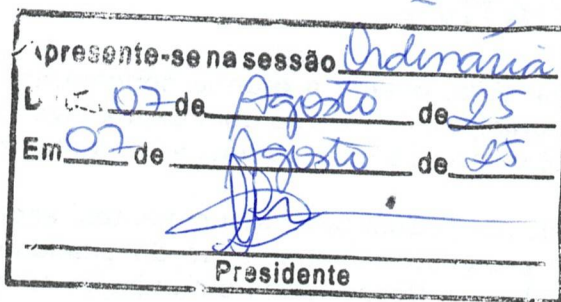 Apresente-se na sessão Ordinária
07 de Agosto de 25
Em 07 de Agosto de 25
Presidente